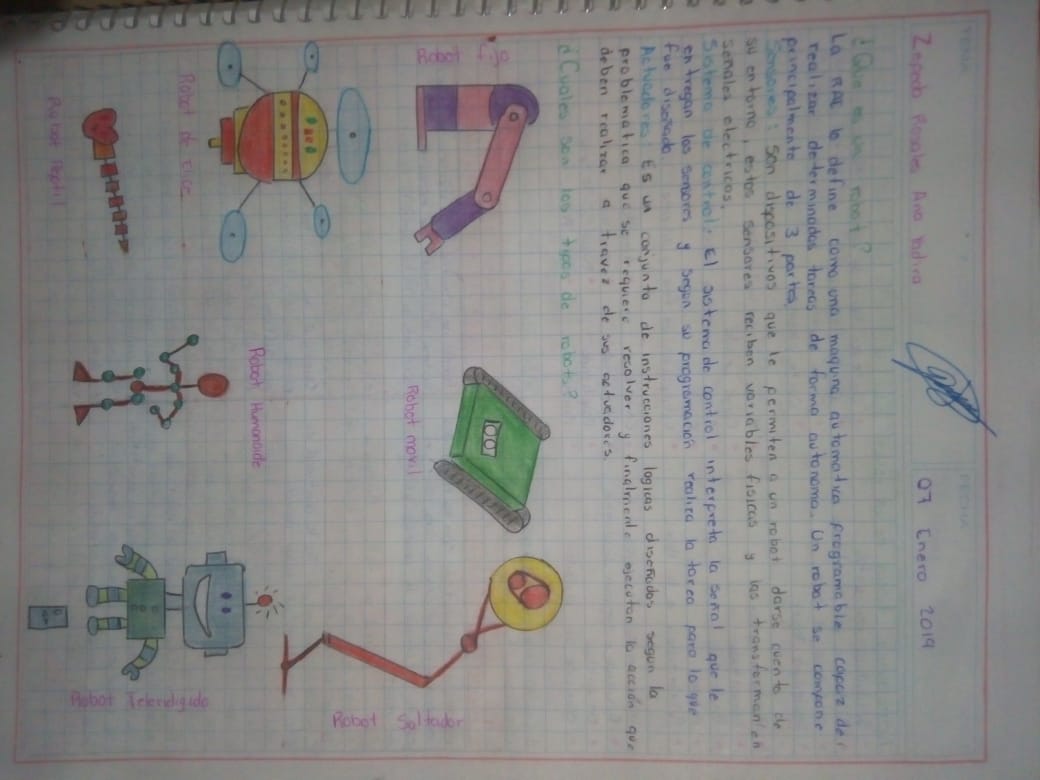 TEMA:
FECHA:
Zepeda Rosales Ana Yadira
07 Enero 2019
¿Que es un robot?
La RAE lo define como una maquina automatica programable capaz de
realizar determinadas tareas de forma autonoma. Un robot se compone
principalmente de 3 partes.
Sensores: son dispositivos que le permiten a un robot darse cuenta de
su entorno, estos sensores reciben variables fisicas y las transforman en
señales electricas.
Sistema de control: El sistema de control interpreta la señal que le
entregan los sensores y según su programación realiza la tarea para la que
fue diseñado.
Actuadores: Es un conjunto de instrucciones logicas diseñadas según la
problematica que se requiere resolver y finalmente ejecutan la acción que
deben realizar a travez de sus actuadores.
¿Cuales son los tipos de robots?
Robot fijo
Robot movil
Robot Saltador
Robot de Elice
Robot Humanoide
Robot Teleridigido
Robot Reptil